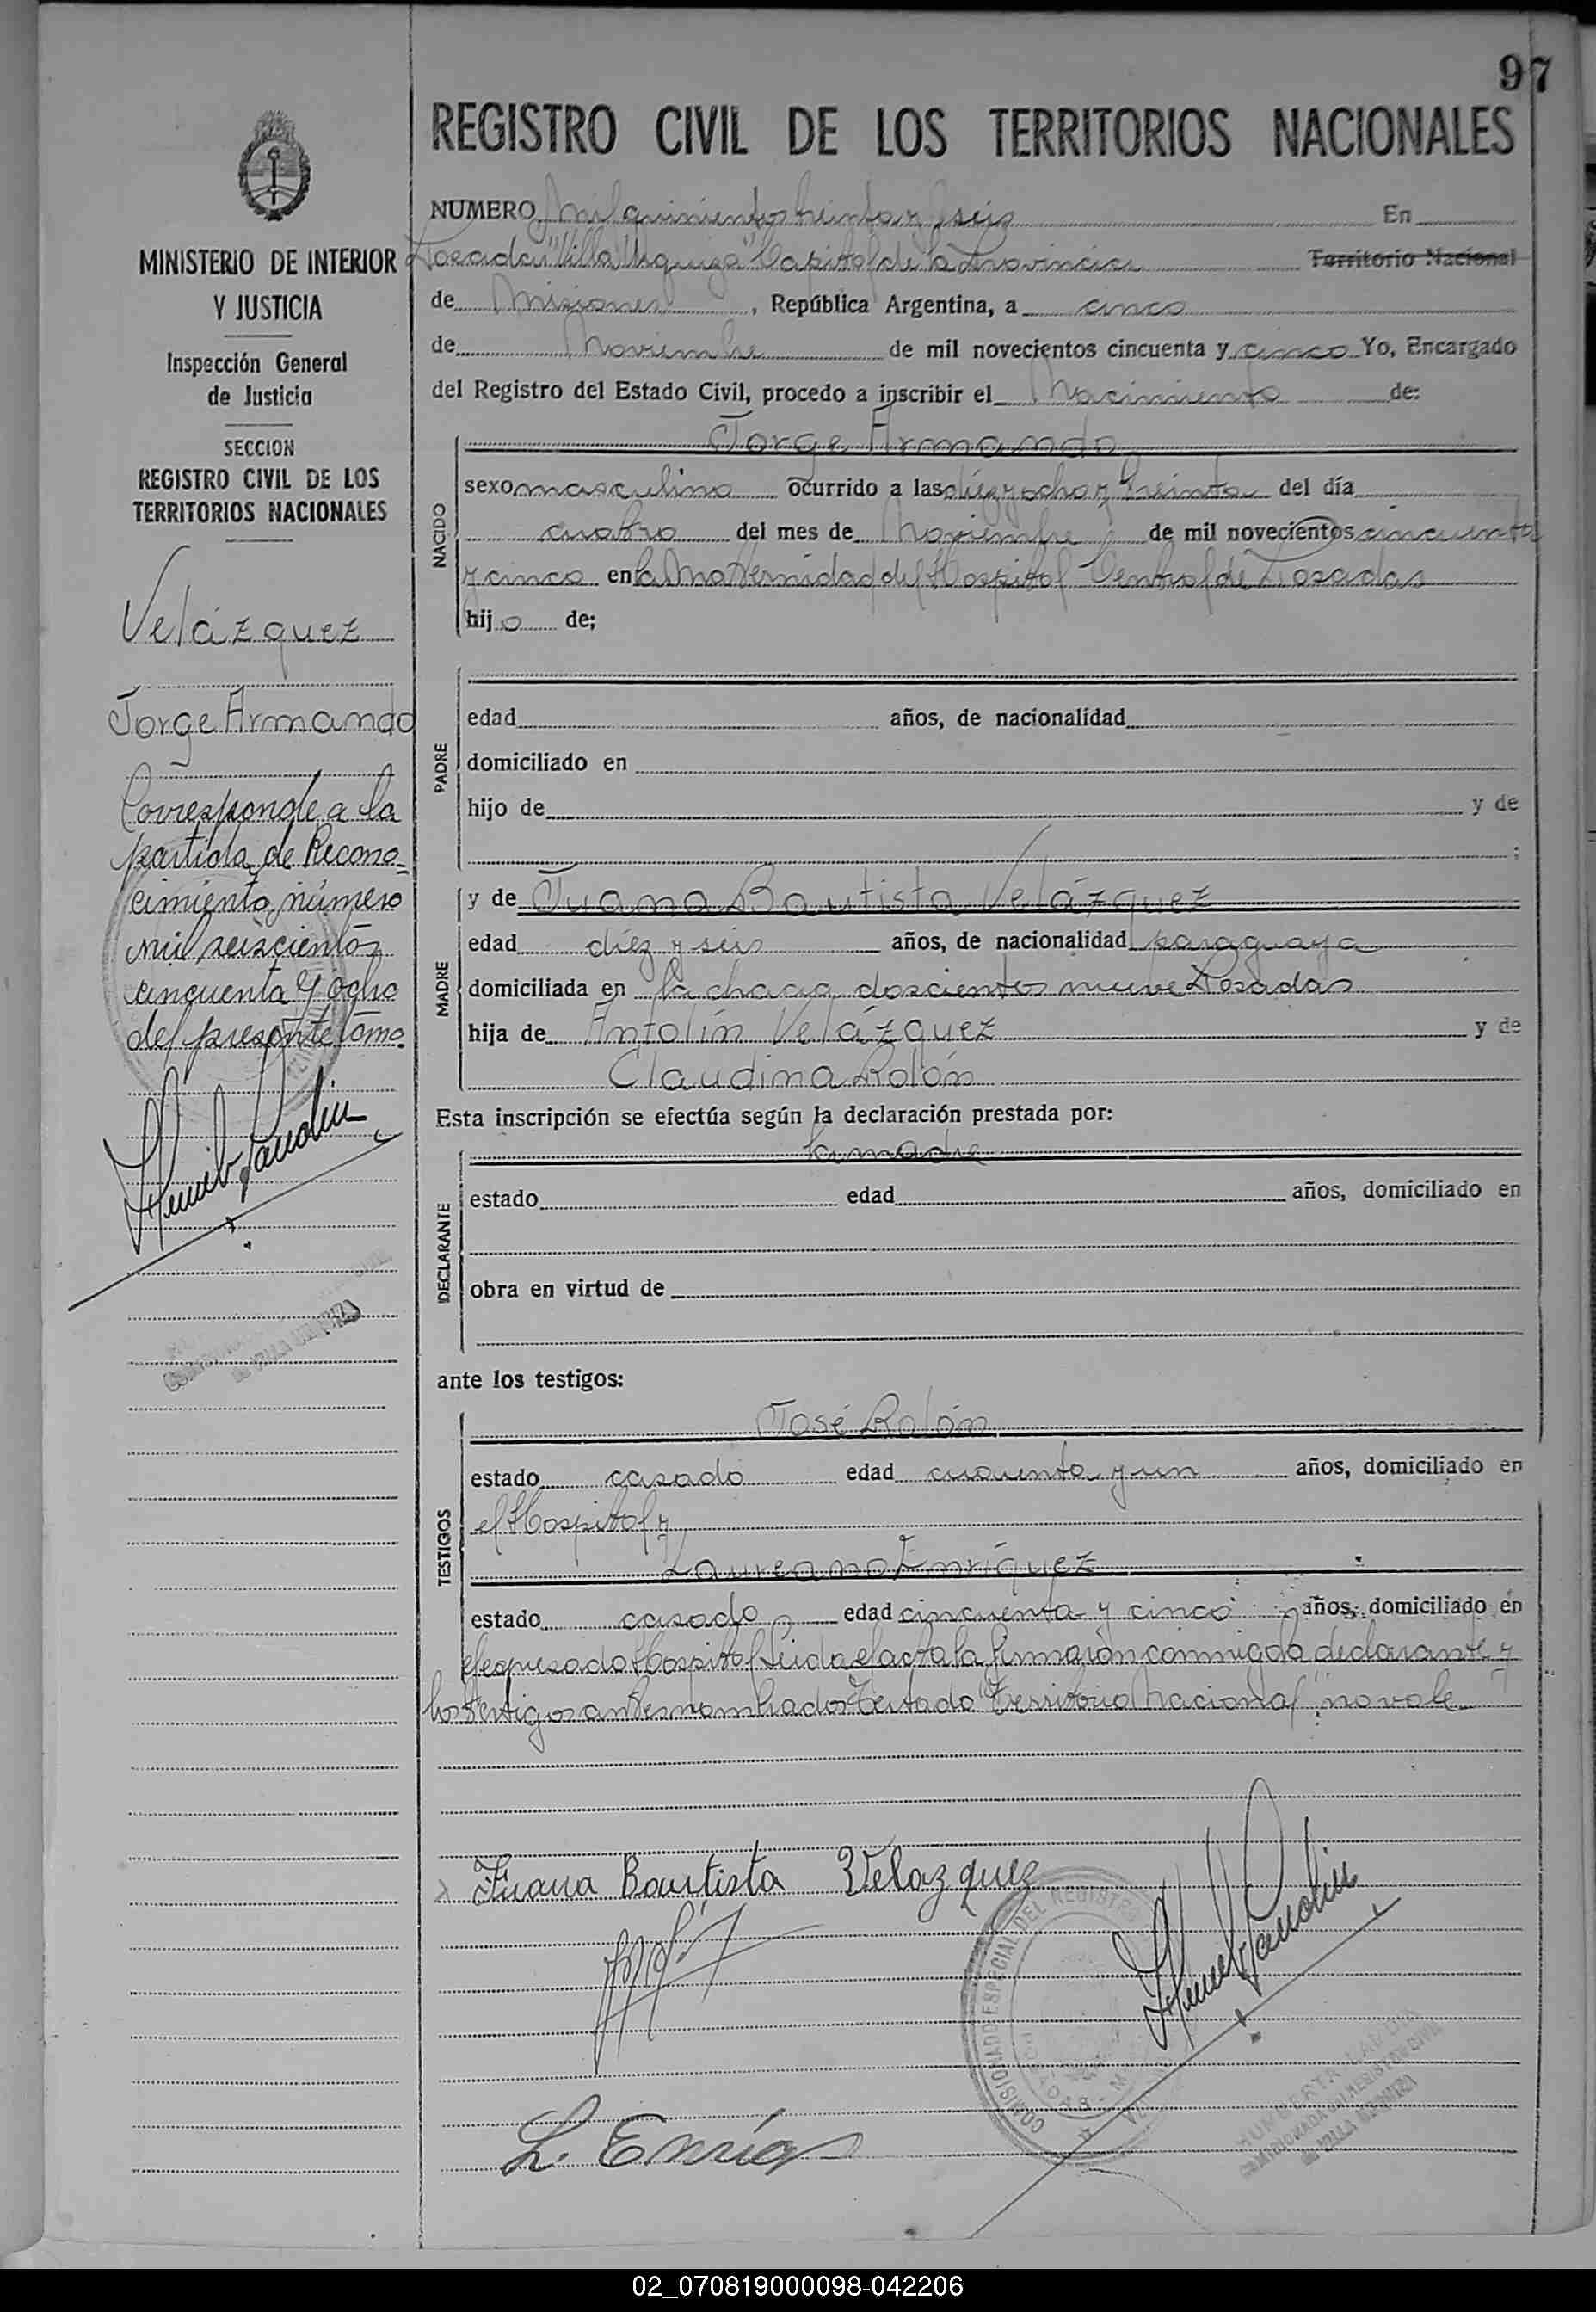 97
REGISTRO CIVIL DE LOS TERRITORIOS NACIONALES
MINISTERIO DE INTERIOR
Y JUSTICIA
Inspección General
de Justicia
SECCION
REGISTRO CIVIL DE LOS
TERRITORIOS NACIONALES
Velázquez
Jorge Armando
Corresponde a la
partida de Recono-
cimiento número
mil seiscientos
cincuenta y ocho
del presente tomo.
DE VILLA URQUIZA
NUMERO Mil quinientos treinta y seis En
Posadas "Villa Urquiza" Capital de la Provincia Territorio Nacional
de Misiones, República Argentina, a cinco
de Noviembre de mil novecientos cincuenta y cinco Yo, Encargado
del Registro del Estado Civil, procedo a inscribir el Nacimiento de:
NACIDO
Jorge Armando
sexo masculino ocurrido a las diez y ocho y treinta del día
cuatro del mes de Noviembre de mil novecientos cincuenta
y cinco en la Maternidad del Hospital Central de Posadas
hijo de;
PADRE
edad años, de nacionalidad
domiciliado en
hijo de y de
;
MADRE
y de Juana Bautista Velázquez
edad diez y seis años, de nacionalidad paraguaya
domiciliada en la chacra doscientos nueve Posadas
hija de Antolín Velázquez y de
Claudina Rolón
Esta inscripción se efectúa según la declaración prestada por:
DECLARANTE
la madre
estado edad años, domiciliado en
obra en virtud de
ante los testigos:
TESTIGOS
José Rolón
estado casado edad cuarenta y un años, domiciliado en
el Hospital y
Laureano Enríquez
estado casado edad cincuenta y cinco años, domiciliado en
el expresado Hospital Leida el acta la firmaron conmigo la declarante y
los testigos antes nombrados Testado "Territorio Nacional": no vale
Juana Bautista Velazquez
COMISIONADO ESPECIAL DEL REGISTRO
POSADAS - M
L. Enríq
COMISIONADA DEL REGISTRO CIVIL
DE VILLA URQUIZA
02_070819000098-042206